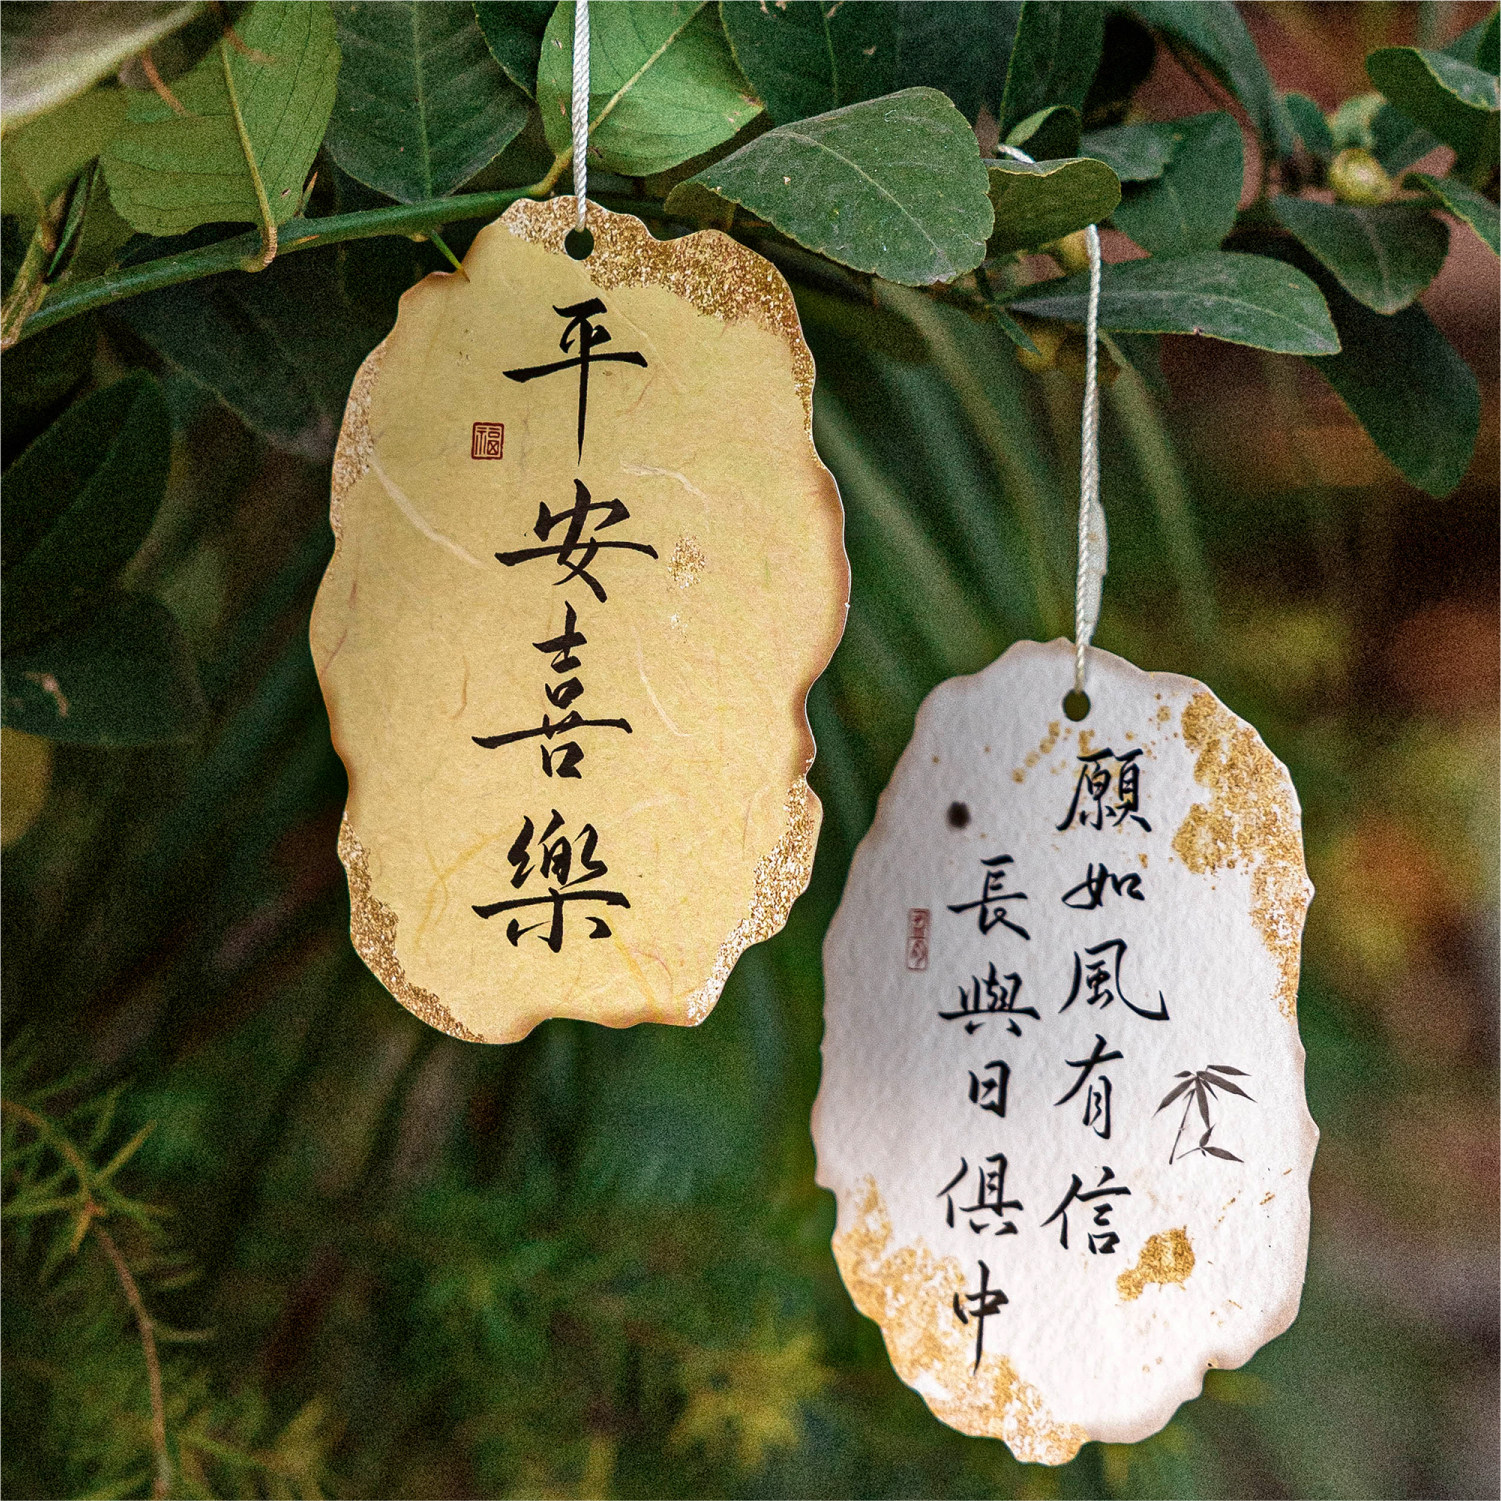 平安喜樂
福
願如風有信
長與日俱中